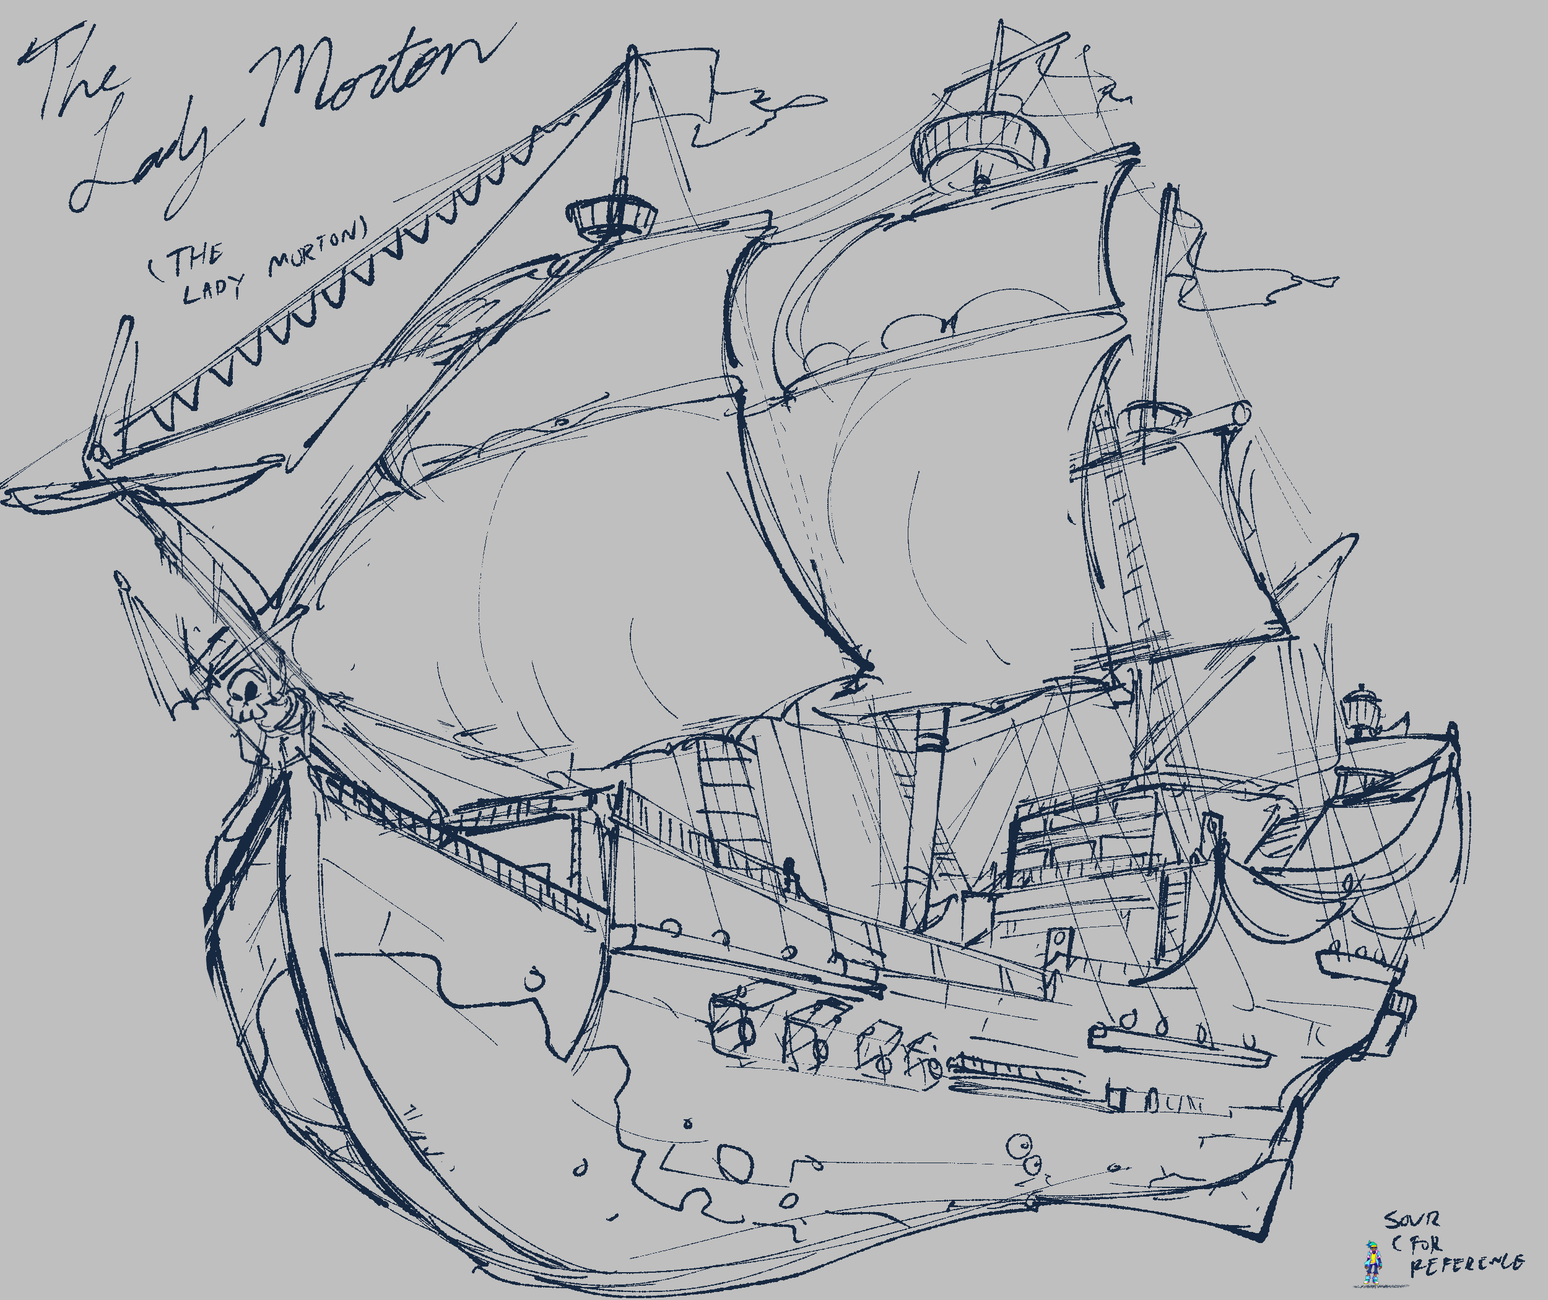 The
Lady Morton
(THE
LADY MORTON)
SOUR
( FOR
REFERENCE